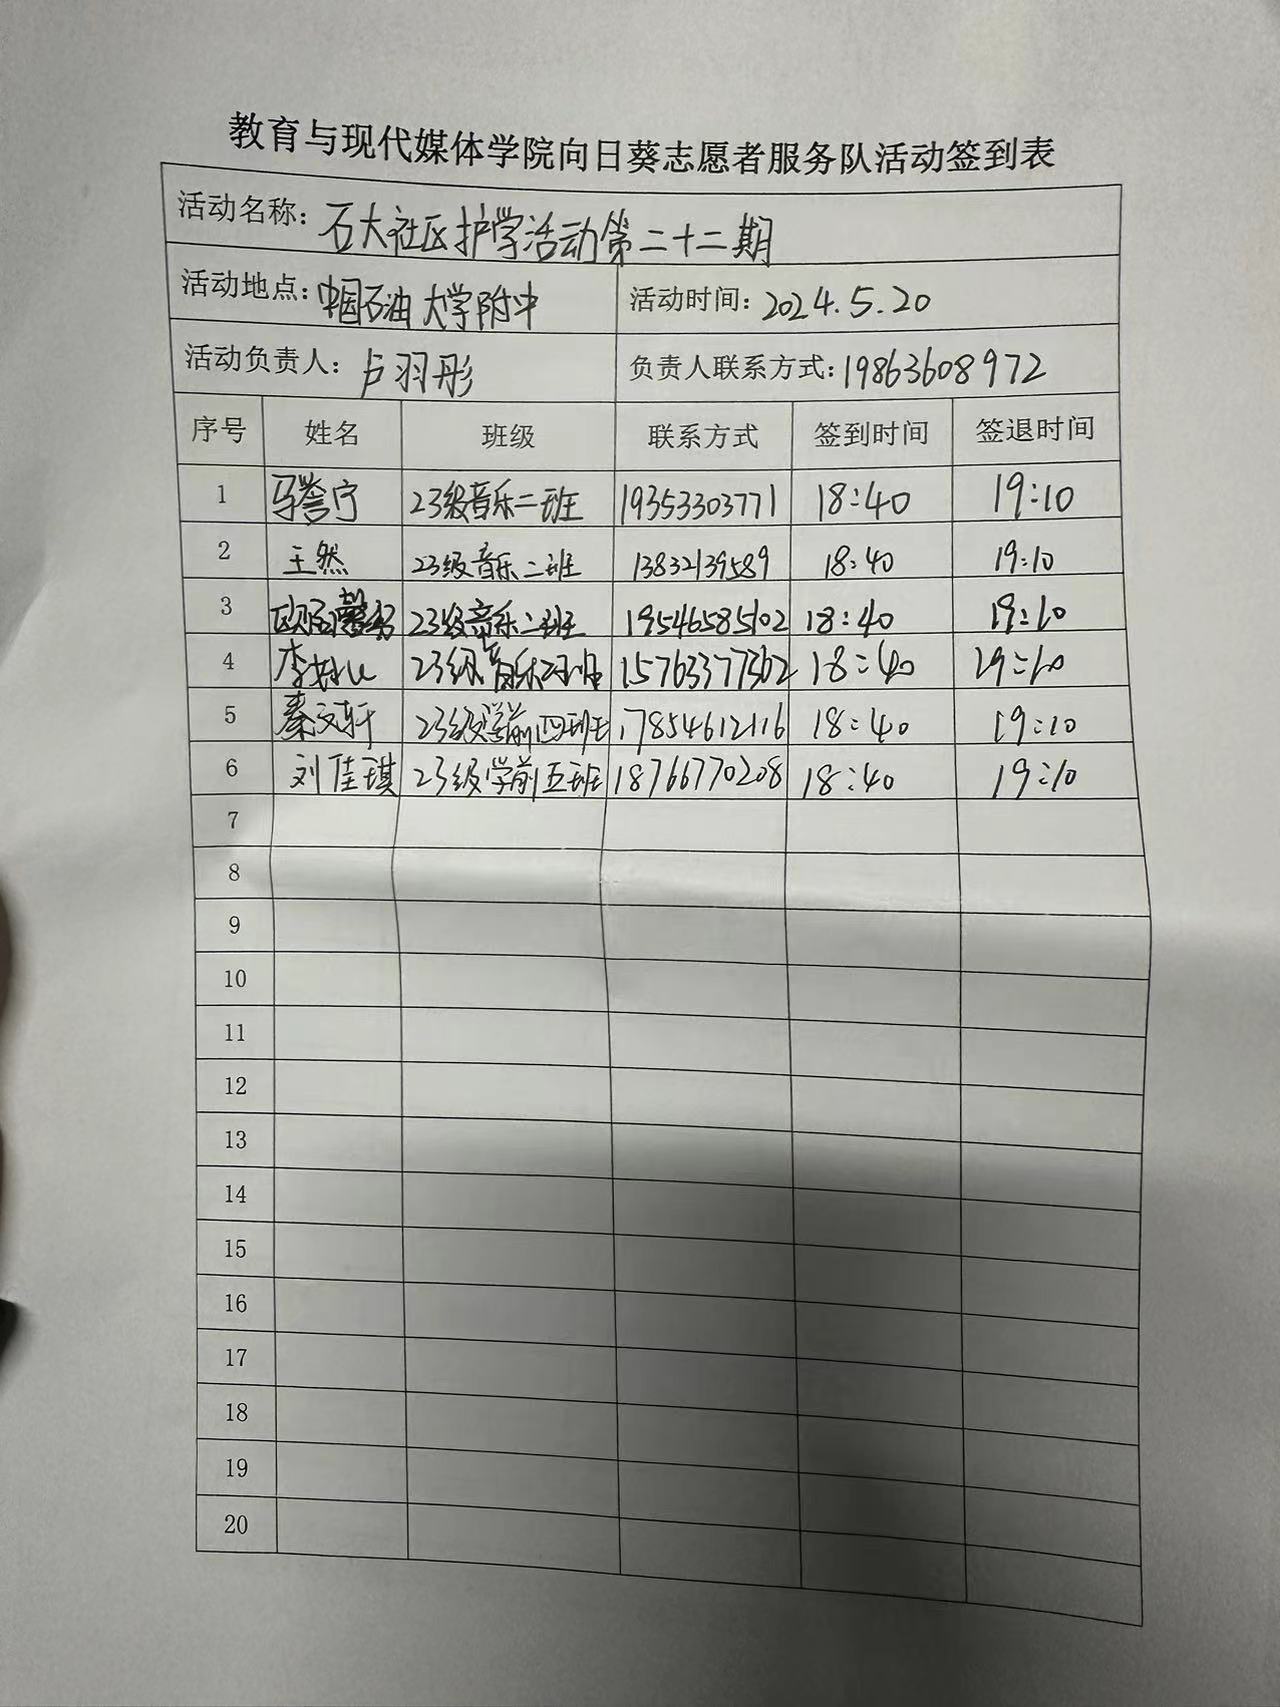 教育与现代媒体学院向日葵志愿者服务队活动签到表
活动名称: 石大社区护学活动第二十二期
活动地点: 中国石油大学附中 活动时间: 2024.5.20
活动负责人: 卢羽彤 负责人联系方式: 19863608972
序号 姓名 班级 联系方式 签到时间 签退时间
1 马誉宁 23级音乐二班 19353303771 18:40 19:10
2 王然 23级音乐二班 13832139589 18:40 19:10
3 23级音乐二班 19546585102 18:40 19:10
4 23级音乐二班 15763377362 18:40 19:10
5 秦文轩 23级学前四班 17854612116 18:40 19:10
6 刘佳琪 23级学前五班 18766770208 18:40 19:10
7
8
9
10
11
12
13
14
15
16
17
18
19
20